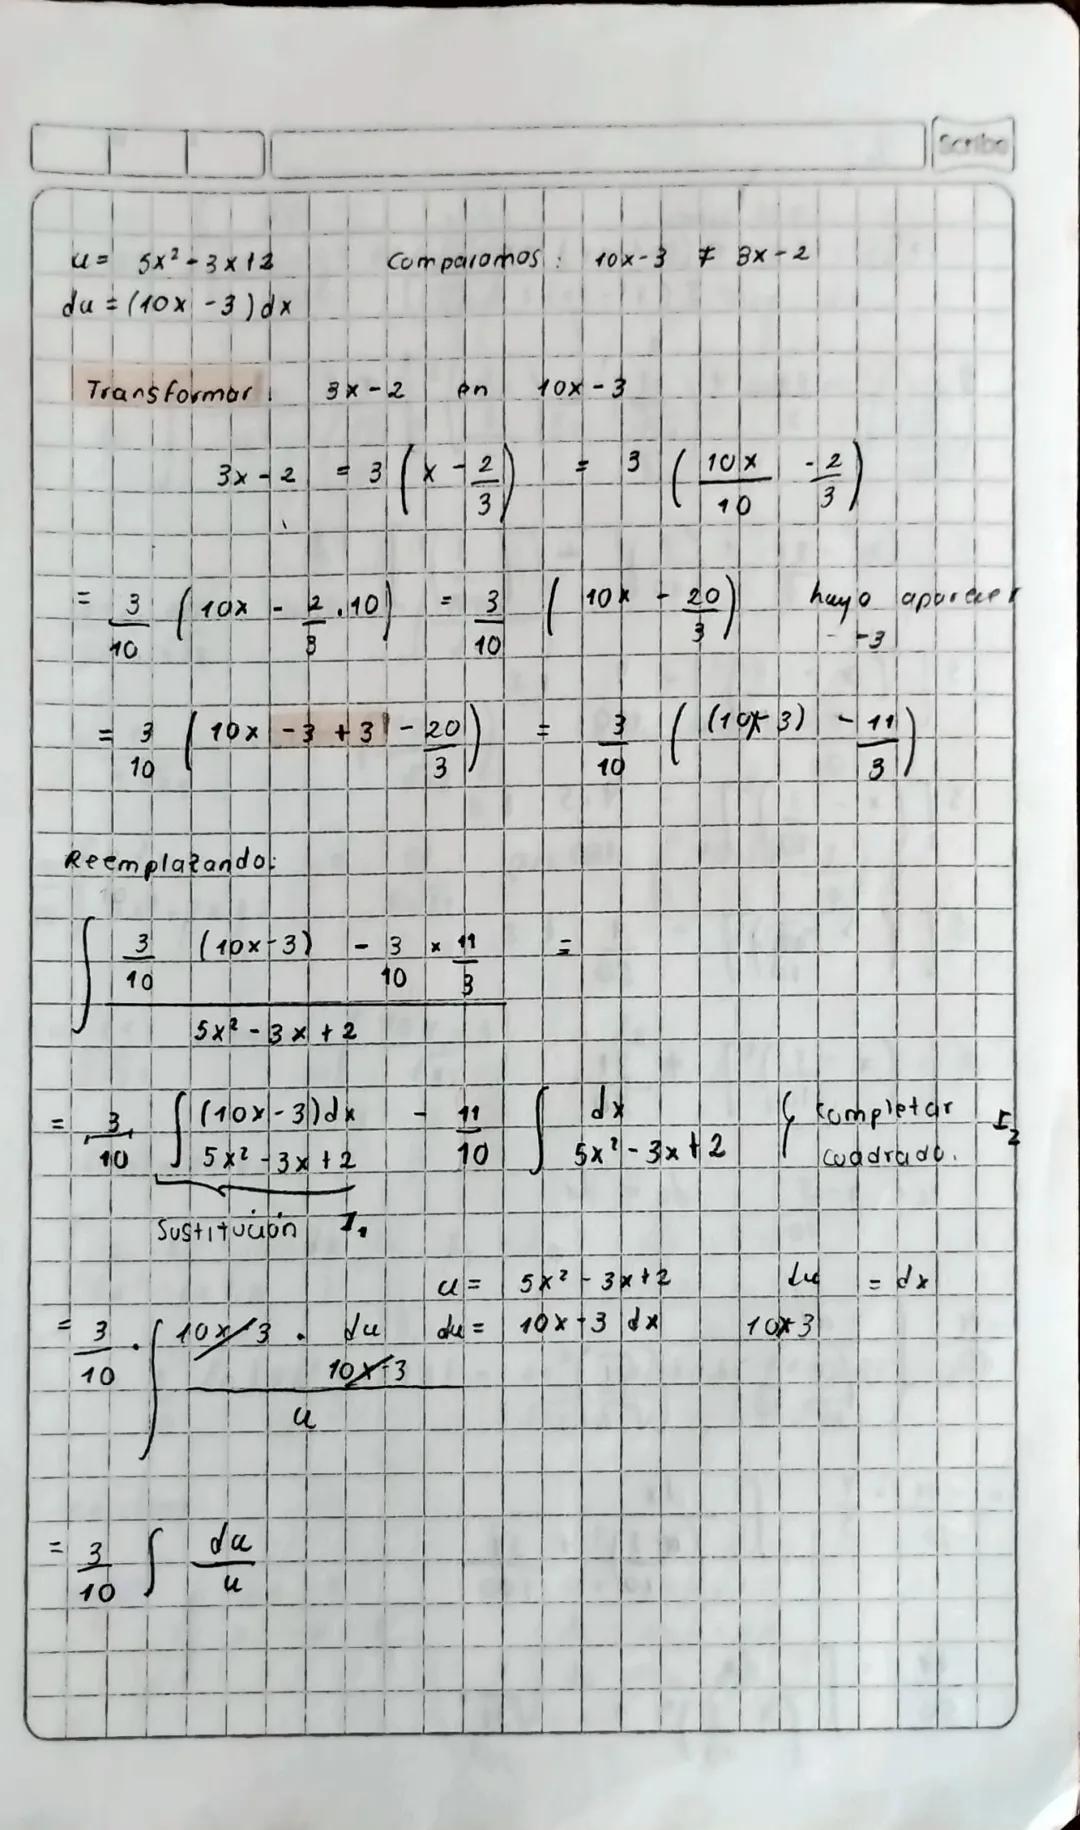 Scribe
u = 5x² - 3x + 2    Comparamos: 10x - 3 ≠ 3x - 2
du = (10x - 3) dx
Transformar: 3x - 2 en 10x - 3
3x - 2 = 3 (x - 2/3) = 3 (10x/10 - 2/3)
= 3/10 (10x - 2/3 . 10) = 3/10 (10x - 20/3) hago aparecer
-3
= 3/10 (10x - 3 + 3 - 20/3) = 3/10 ((10x - 3) - 11/3)
Reemplazando:
∫ (3/10 (10x - 3) - 3/10 × 11/3) / (5x² - 3x + 2) =
= 3/10 ∫ (10x - 3) dx / (5x² - 3x + 2) - 11/10 ∫ dx / (5x² - 3x + 2) { completar cuadrado. I₂
Sustitución I₁
u = 5x² - 3x + 2    du / (10x - 3) = dx
du = 10x - 3 dx
= 3/10 . ∫ (10x - 3 . du / (10x - 3)) / u
= 3/10 ∫ du / u